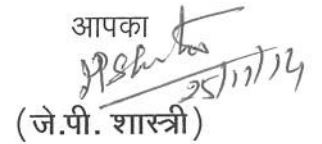 आपका
25/11/14
(जे.पी. शास्त्री)